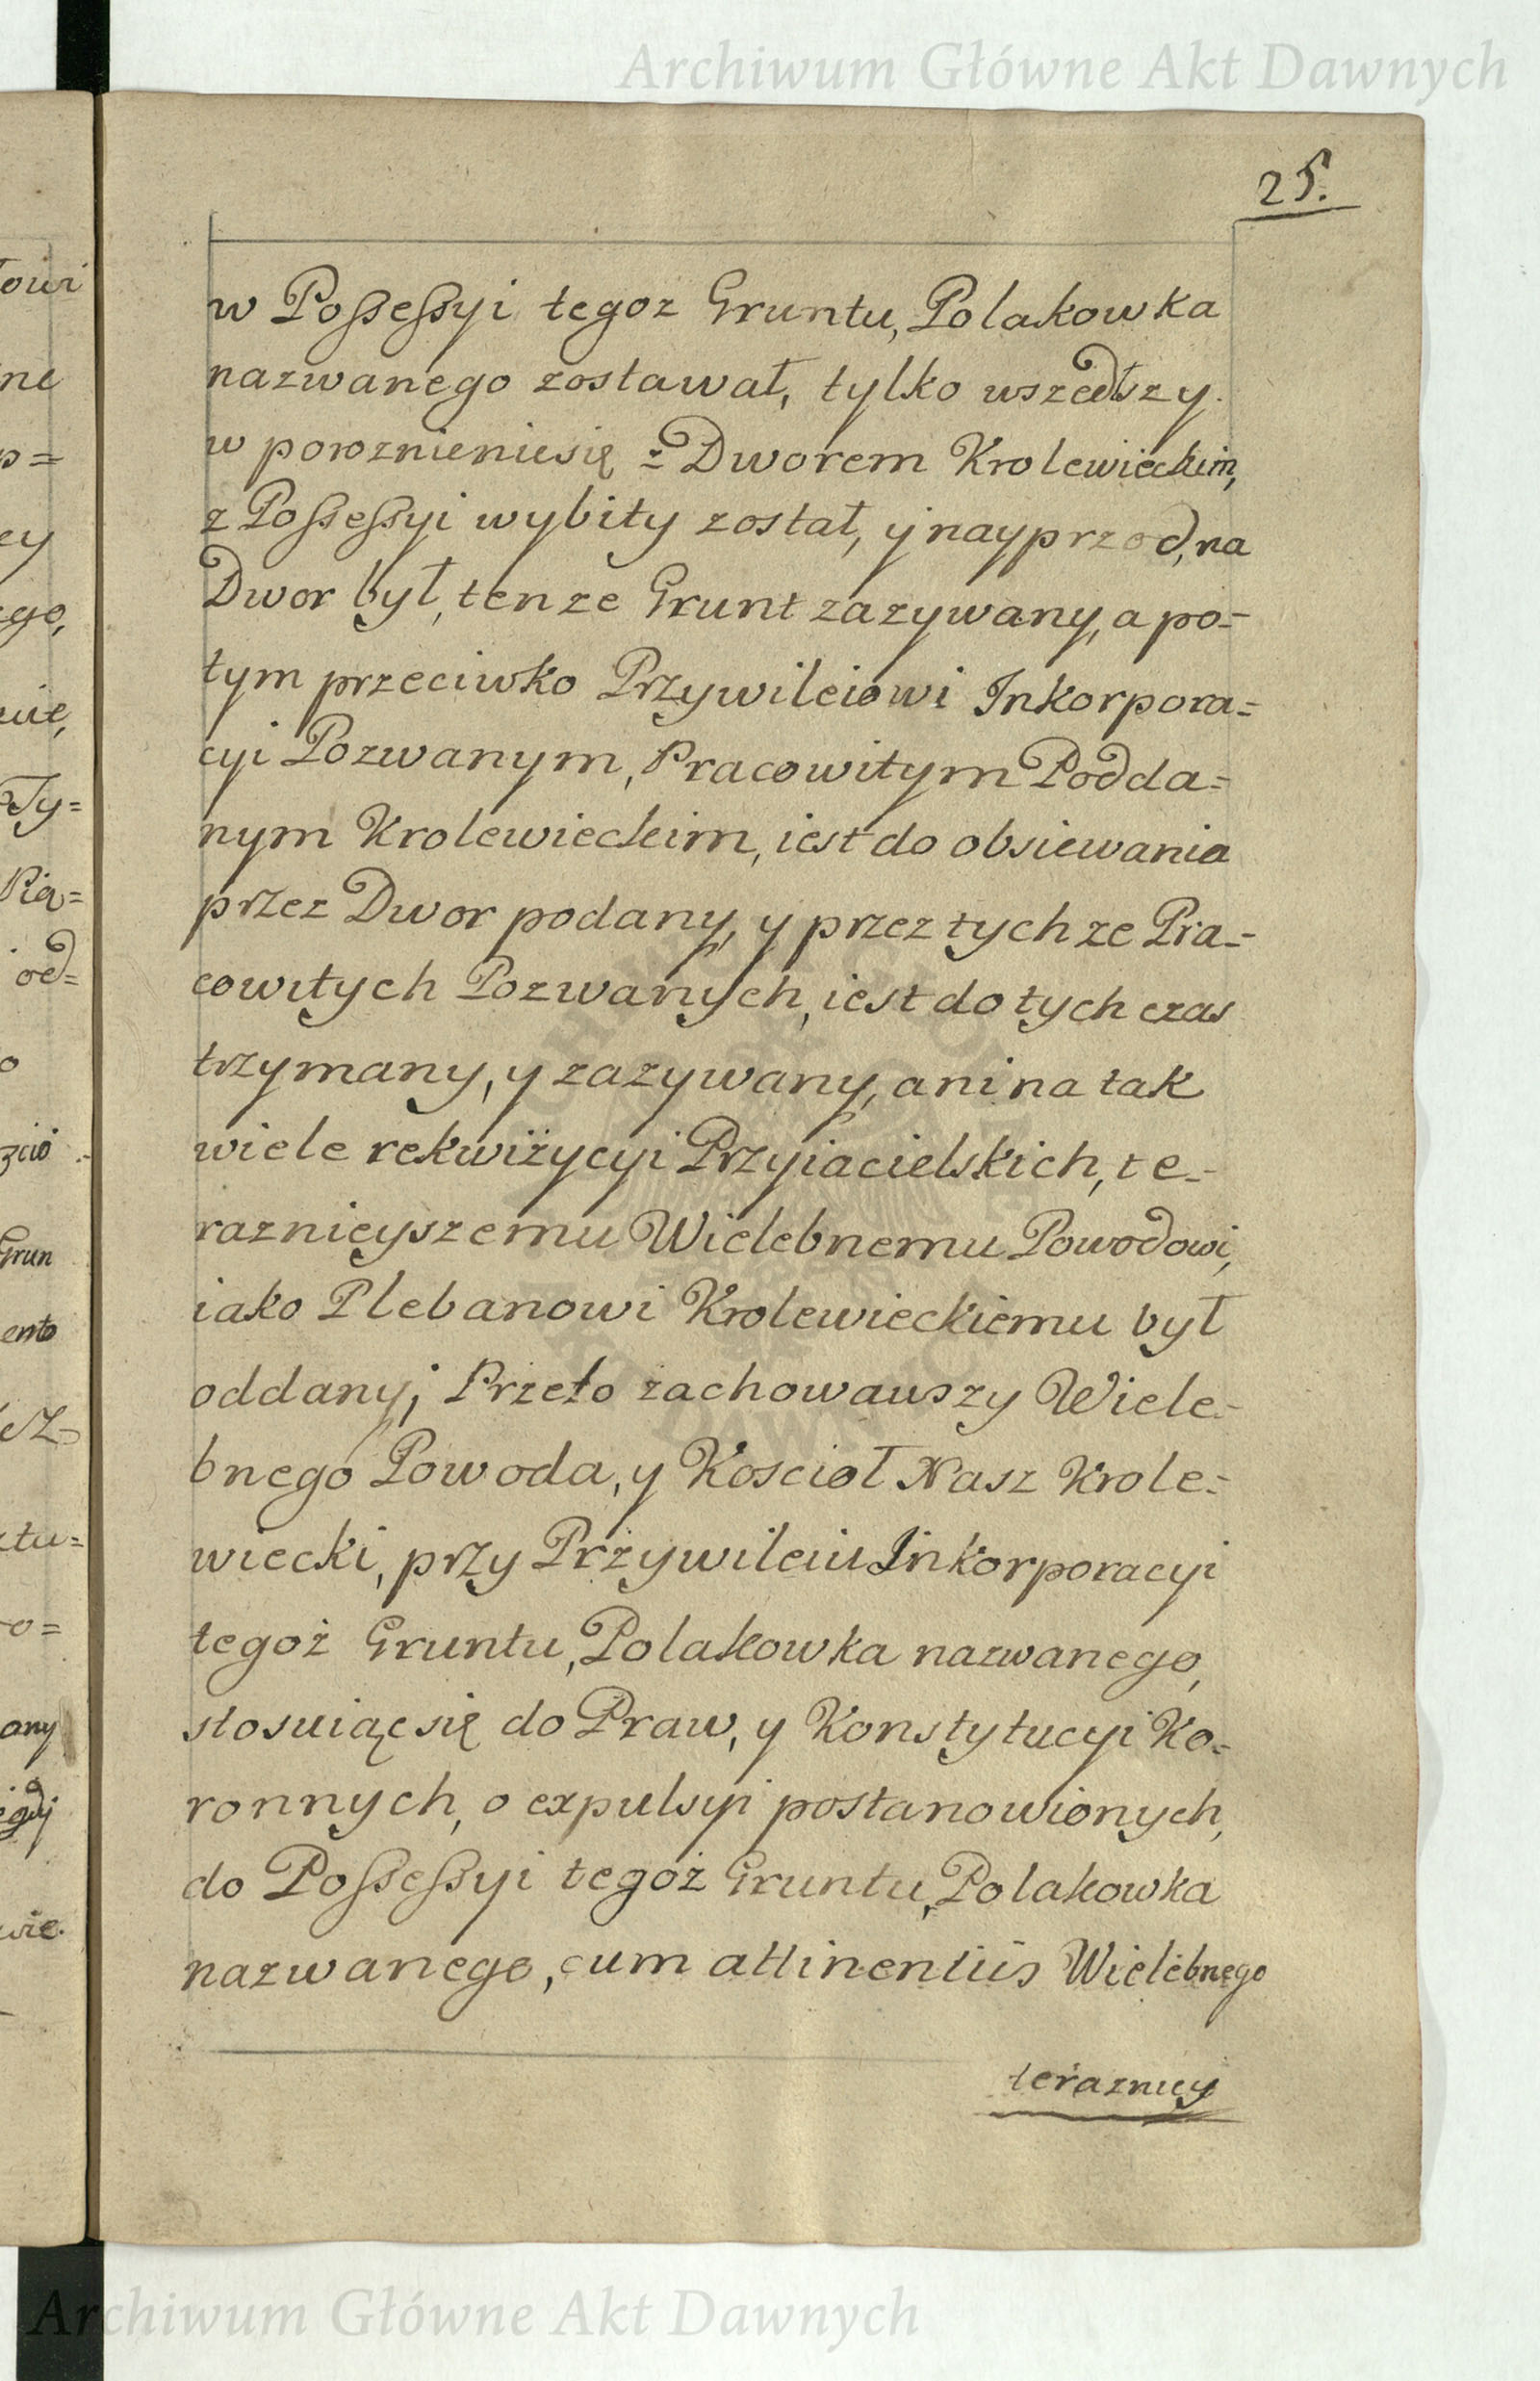 Archiwum Główne Akt Dawnych
25.
w Possessyi tegoz Gruntu, Polakowka
nazwanego zostawał, tylko wszedłszy
w poroznienie się z Dworem Krolewieckim,
z Possessyi wybity został, y nayprzod, na
Dwor był, tenze Grunt zazywany, a po=
tym przeciwko Przywileiowi Inkorpora=
cyi Pozwanym, Pracowitym Podda=
nym Krolewieckim, iest do obsiewania
przez Dwor podany, y przez tychze Pra=
cowitych Pozwanych, iest do tych czas
trzymany, y zazywany, ani na tak
wiele rekwiżycyi Przyiacielskich, te=
raznieyszemu Wielebnemu Powodowi,
iako Plebanowi Krolewieckiemu był
oddany; Przeto zachowawszy Wiele=
bnego Powoda, y Koscioł Nasz Krole=
wiecki, przy Przywileiu Inkorporacyi
tegoż Gruntu, Polakowka nazwanego,
stosuiąc się do Praw, y Konstytucyi Ko=
ronnych, o expulsyi postanowionych,
do Possessyi tegoż Gruntu, Polakowka
nazwanego, cum attinentiis Wielebnego
terazniey
Archiwum Główne Akt Dawnych